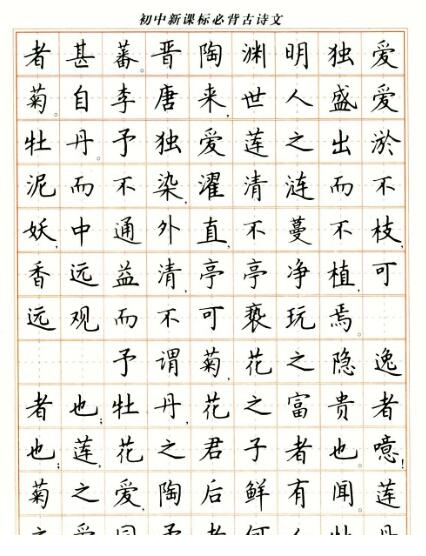 初中新课标必背古诗文
者甚蕃。晋陶渊明独爱
菊。自李唐来,世人盛爱
牡丹。予独爱莲之出淤
泥而不染,濯清涟而不
妖,中通外直,不蔓不枝,
香远益清,亭亭净植,可
远观而不可亵玩焉。
予谓菊,花之隐逸
者也;牡丹,花之富贵者
也;莲,花之君子者也。噫!
菊之爱,陶后鲜有闻。莲